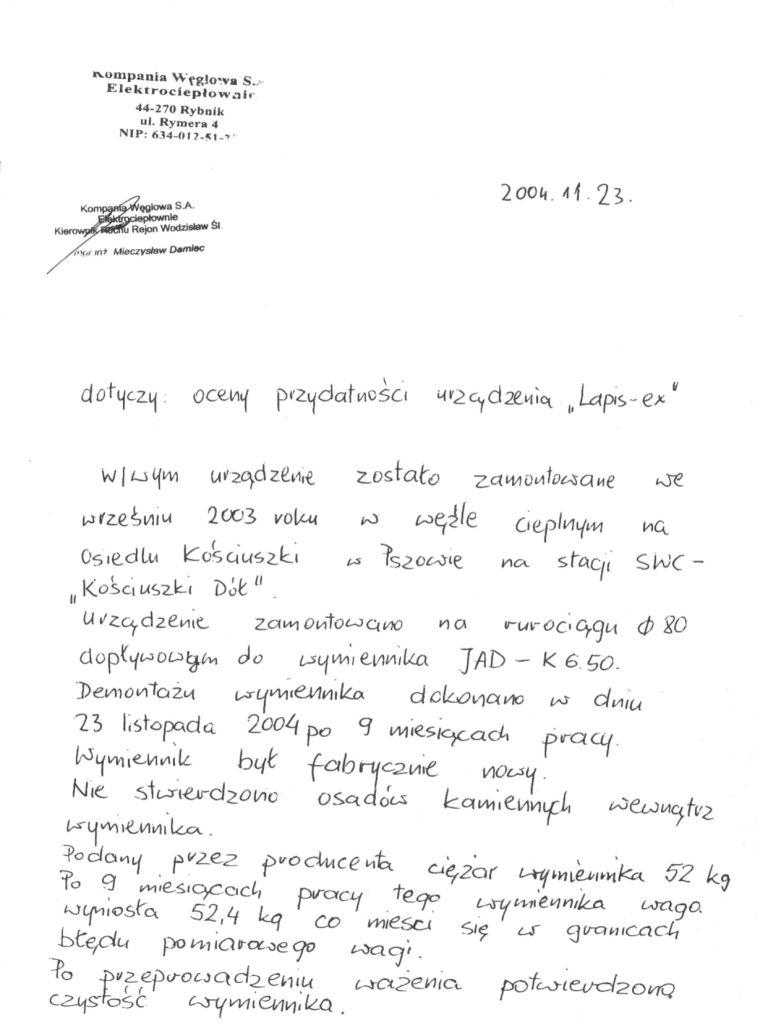 Kompania Węglowa S.A.
Elektrociepłownie
44-270 Rybnik
ul. Rymera 4
NIP: 634-012-51-
2004.11.23.
Kompania Węglowa S.A.
Elektrociepłownie
Kierownik Ruchu Rejon Wodzisław Śl.
mgr inż Mieczysław Damiec
dotyczy: oceny przydatności urządzenia „Lapis-ex"
W/wym urządzenie zostało zamontowane we
wrześniu 2003 roku w węźle cieplnym na
Osiedlu Kościuszki w Pszowie na stacji SWC -
„Kościuszki Dół"
Urządzenie zamontowano na rurociągu Φ 80
dopływowym do wymiennika JAD - K 6.50.
Demontażu wymiennika dokonano w dniu
23 listopada 2004 po 9 miesiącach pracy.
Wymiennik był fabrycznie nowy.
Nie stwierdzono osadów kamiennych wewnątrz
wymiennika.
Podany przez producenta ciężar wymiennika 52 kg
Po 9 miesiącach pracy tego wymiennika waga
wyniosła 52,4 kg co mieści się w granicach
błędu pomiarowego wagi.
Po przeprowadzeniu ważenia potwierdzono
czystość wymiennika.